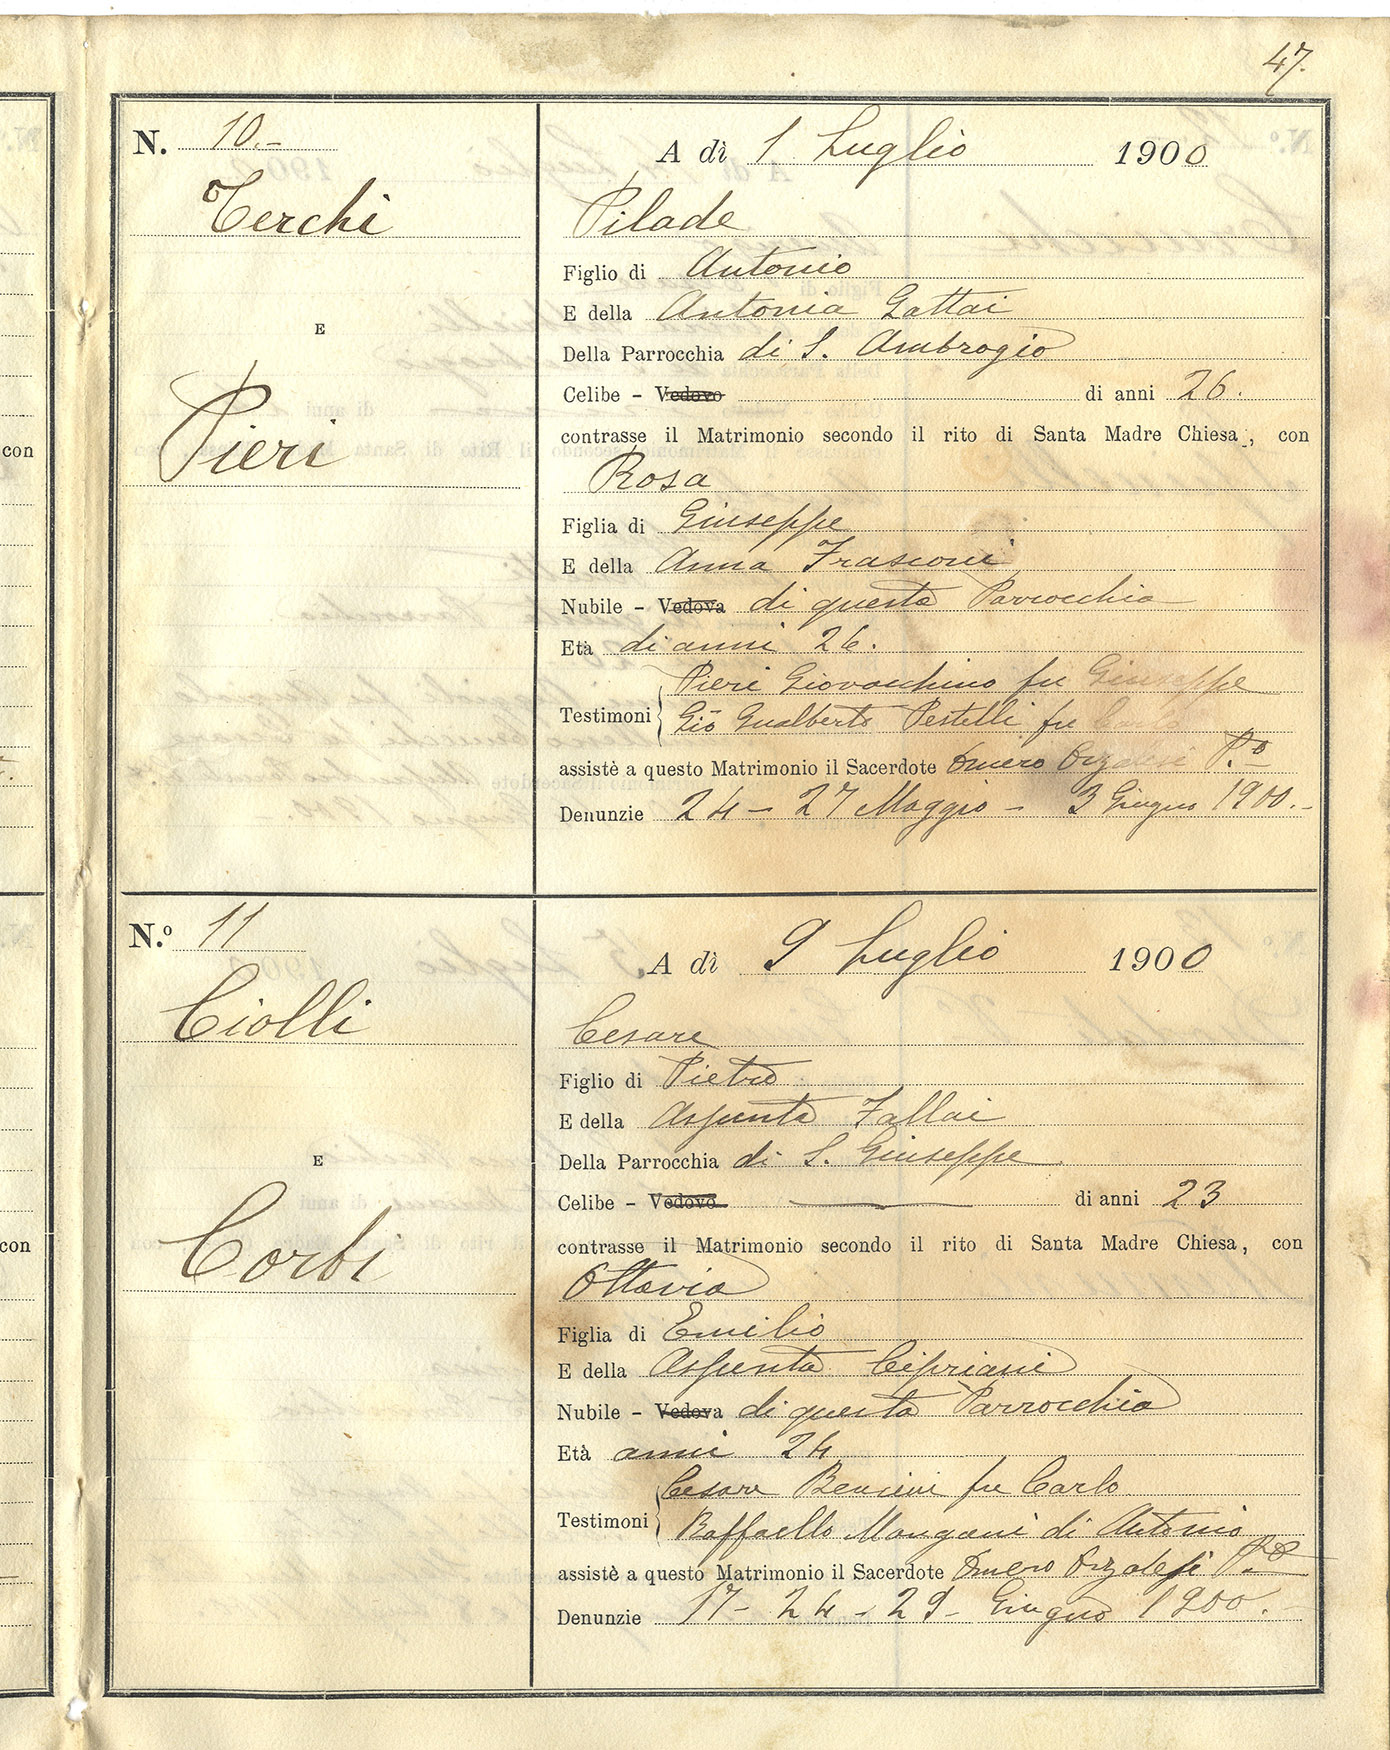 47.
N. 10.-
Terchi
E
Pieri
A dì 1 Luglio 1900
Pilade
Figlio di Antonio
E della Antonia Gattai
Della Parrocchia di S. Ambrogio
Celibe - Vedovo di anni 26.
contrasse il Matrimonio secondo il rito di Santa Madre Chiesa, con
Rosa
Figlia di Giuseppe
E della Anna Frasconi
Nubile - Vedova di questa Parrocchia
Età di anni 26.
Pieri Giovacchino fu Giuseppe
Testimoni Gio Gualberto Pestelli fu Carlo
assistè a questo Matrimonio il Sacerdote Omero Orzalesi P.o
Denunzie 24 - 27 Maggio - 3 Giugno 1900.-
N.o 11
Ciolli
E
Corsi
A dì 9 Luglio 1900
Cesare
Figlio di Pietro
E della Assunta Fallai
Della Parrocchia di S. Giuseppe
Celibe - Vedovo di anni 23
contrasse il Matrimonio secondo il rito di Santa Madre Chiesa, con
Ottavia
Figlia di Emilio
E della Assunta Cipriani
Nubile - Vedova di questa Parrocchia
Età anni 24
Cesare Bencini fu Carlo
Testimoni Raffaello Mangani di Antonio
assistè a questo Matrimonio il Sacerdote Omero Orzalesi P.o
Denunzie 17 - 24 - 29 - Giugno 1900.
con
con